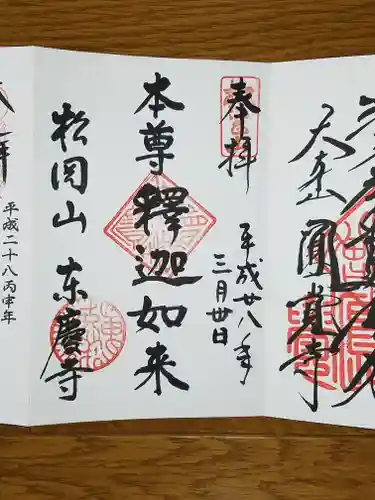 奉拝
平成廿八年
三月廿日
本尊釋迦如来
松岡山 東慶寺
圓覚寺
拝
平成二十八丙申年